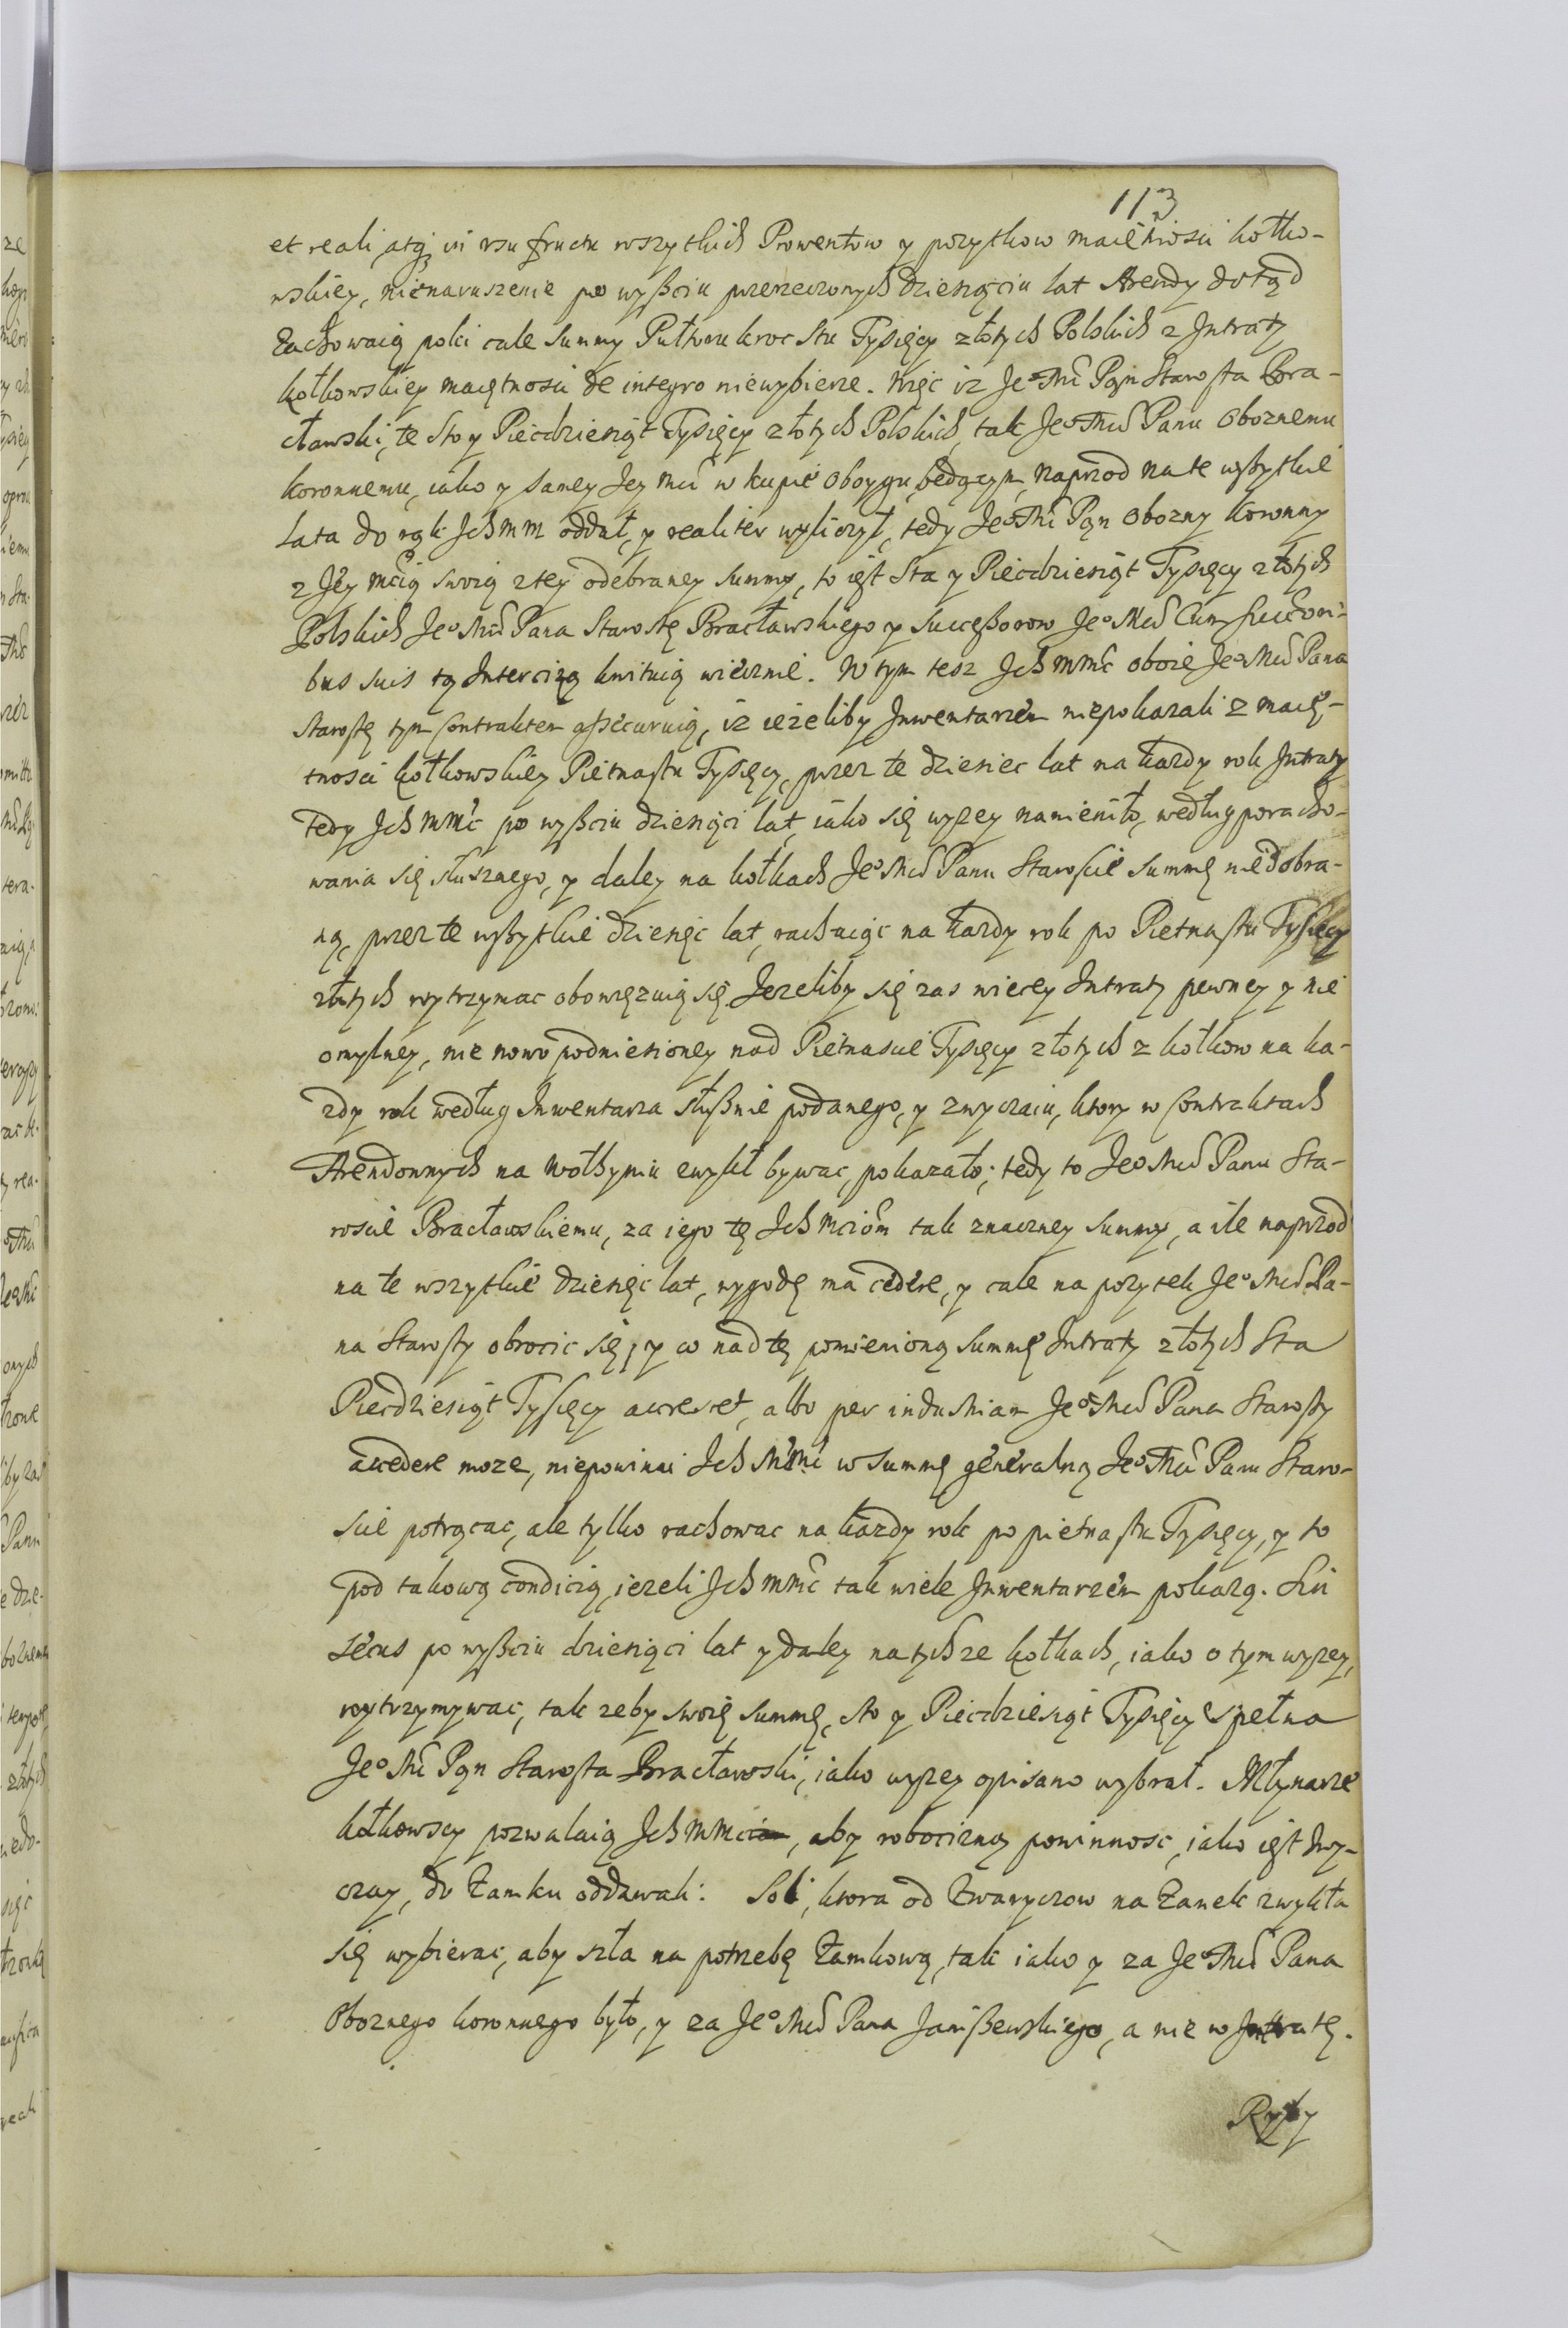 113
et reali atq; in usu fructu wszytkich Prowentow y pozytkow maiętnosci kołko-
wskiey, nienaruszenie po wyßciu przerzeczonych dziesięciu lat Arendy dotąd
Zachowaią poki cale summy Pułtorakroc Sta Tysięcy złotych Polskich z Intraty
kołkowskiey maiętnosci de integro niewybierze. Więc iz Jeo Mć Pąn Starosta Bra-
cławski, te Sto y Piecdziesiąt Tysięcy złotych Polskich, tak Jeo Mci Panu Oboznemu
koronnemu, iako y samey Jey Mci w kupie oboygu będącym, naprzod na te wßytkie
lata do rąk Ich MM oddał, y realiter wyliczył, tedy Jeo Mć Pąn Obozny koronny
z Jey Mcią swoią z tey odebraney summy, to iest Sta y Piecdziesiąt Tysięcy złotych
Polskich Jeo Mci Pana Starostę Bracławskiego y successorow Jeo Mci Cum succesori-
bus suis tą Intercizą kwituią wiecznie. W tym tesz Ich MMć oboie Jeo Mci Pana
Starostę tym Contraktem assecuruią, iz iezeliby Inwentarzem niepokazali z maię-
tnosci kołkowskiey Pietnastu Tysięcy, przez te dziesiec lat na kazdy rok Intraty
tedy Ich MMć po wyßciu dziesięci lat, iako się wyzey namieniło, według poracho-
wania się słusznego, y daley na kołkach Jeo Mci Panu Staroscie summę niedobra-
ną, przez te wßytkie dziesięc lat, rachuiąc na kazdy rok po Pietnastu Tysięcy
złotych wytrzymac obowięzuią się. Jezeliby się zas wiecey Intraty pewney y nie
omylney, nie nowo podniesioney nad Pietnascie Tysięcy złotych z kołkow na ka-
zdy rok według Inwentarza słußnie podanego, y zwyczaiu, ktory w Contraktach
Arendownych na Wołhyniu zwykł bywac, pokazało; tedy to Jeo Mci Panu Sta-
roscie Bracławskiemu, za iego tę Ich Mciom tak znaczney summy, a ile naprzod
na te wszytkie dziesięc lat, wygodę ma cedere, y cale na pozytek Jeo Mci Pa-
na Starosty obrocic się, y co nad tę pomienioną summę Intraty złotych Sta
Piecdziesiąt Tysięcy accrescet, albo per industriam Jeo Mci Pana Starosty
accedere moze, niepowinni Ich MMć w summę generalną Jeo Mci Panu Staro-
scie potrącac, ale tylko rachowac na kazdy rok po pietnastu Tysięcy, y to
pod takową condicią, iezeli Ich MMć tak wiele Inwentarzem pokazą. Sin
secus po wyßciu dziesięci lat y daley na tychze kołkach, iako o tym wyzey,
wytrzymywac, tak zeby swoię summę, sto y Piecdziesiąt Tysięcy spełna
Jeo Mć Pąn Starosta Bracławski, iako wyzey opisano wybrał. Młynarze
kołkowscy pozwalaią Ich MM, aby robocizną powinnosc, iako iest zwy-
czay, do Zamku oddawali: Sol, ktora od Zwaryczow na Zamek zwykła
się wybierac, aby szła na potrzebę Zamkową, tak iako y za Jeo Mci Pana
Oboznego koronnego było, y za Jeo Mci Pana Janißewskiego, a nie w Intratę.
Ryby